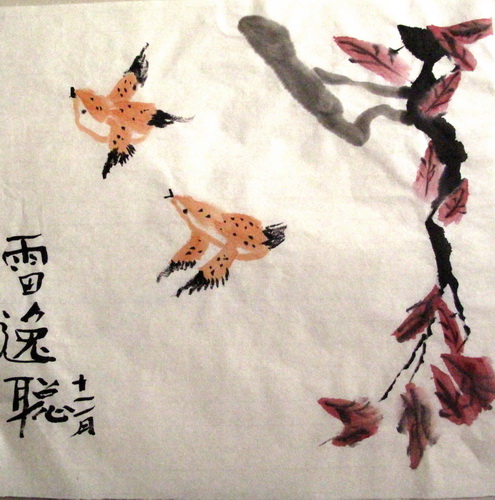 雷逸聪
十二月